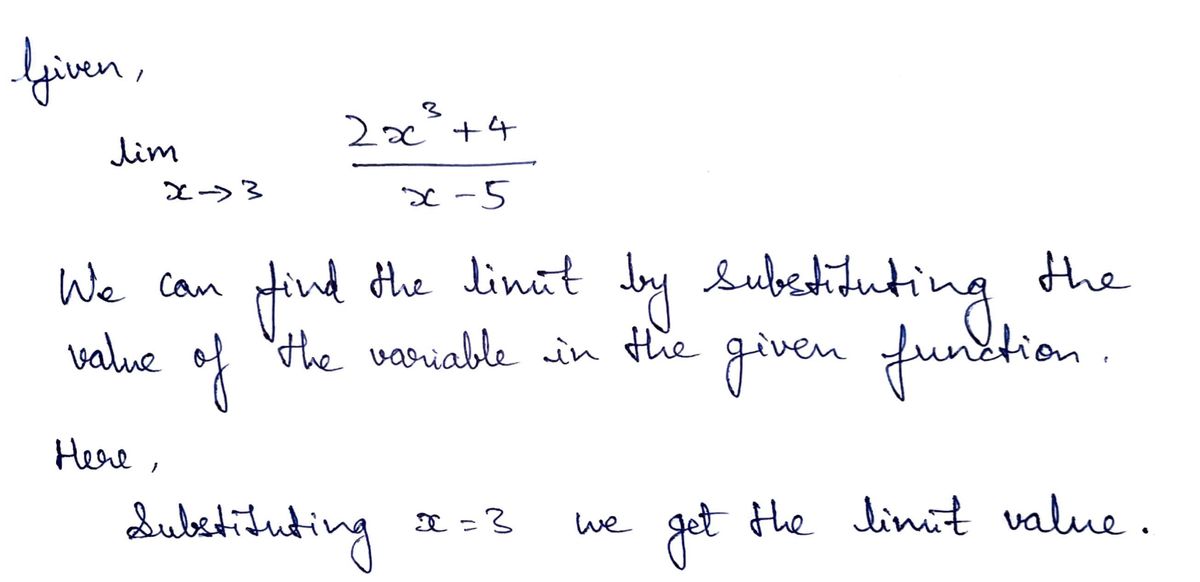 Given,
lim x→3 (2x³+4)/(x-5)
We can find the limit by substituting the
value of the variable in the given function.
Here,
Substituting x=3 we get the limit value.